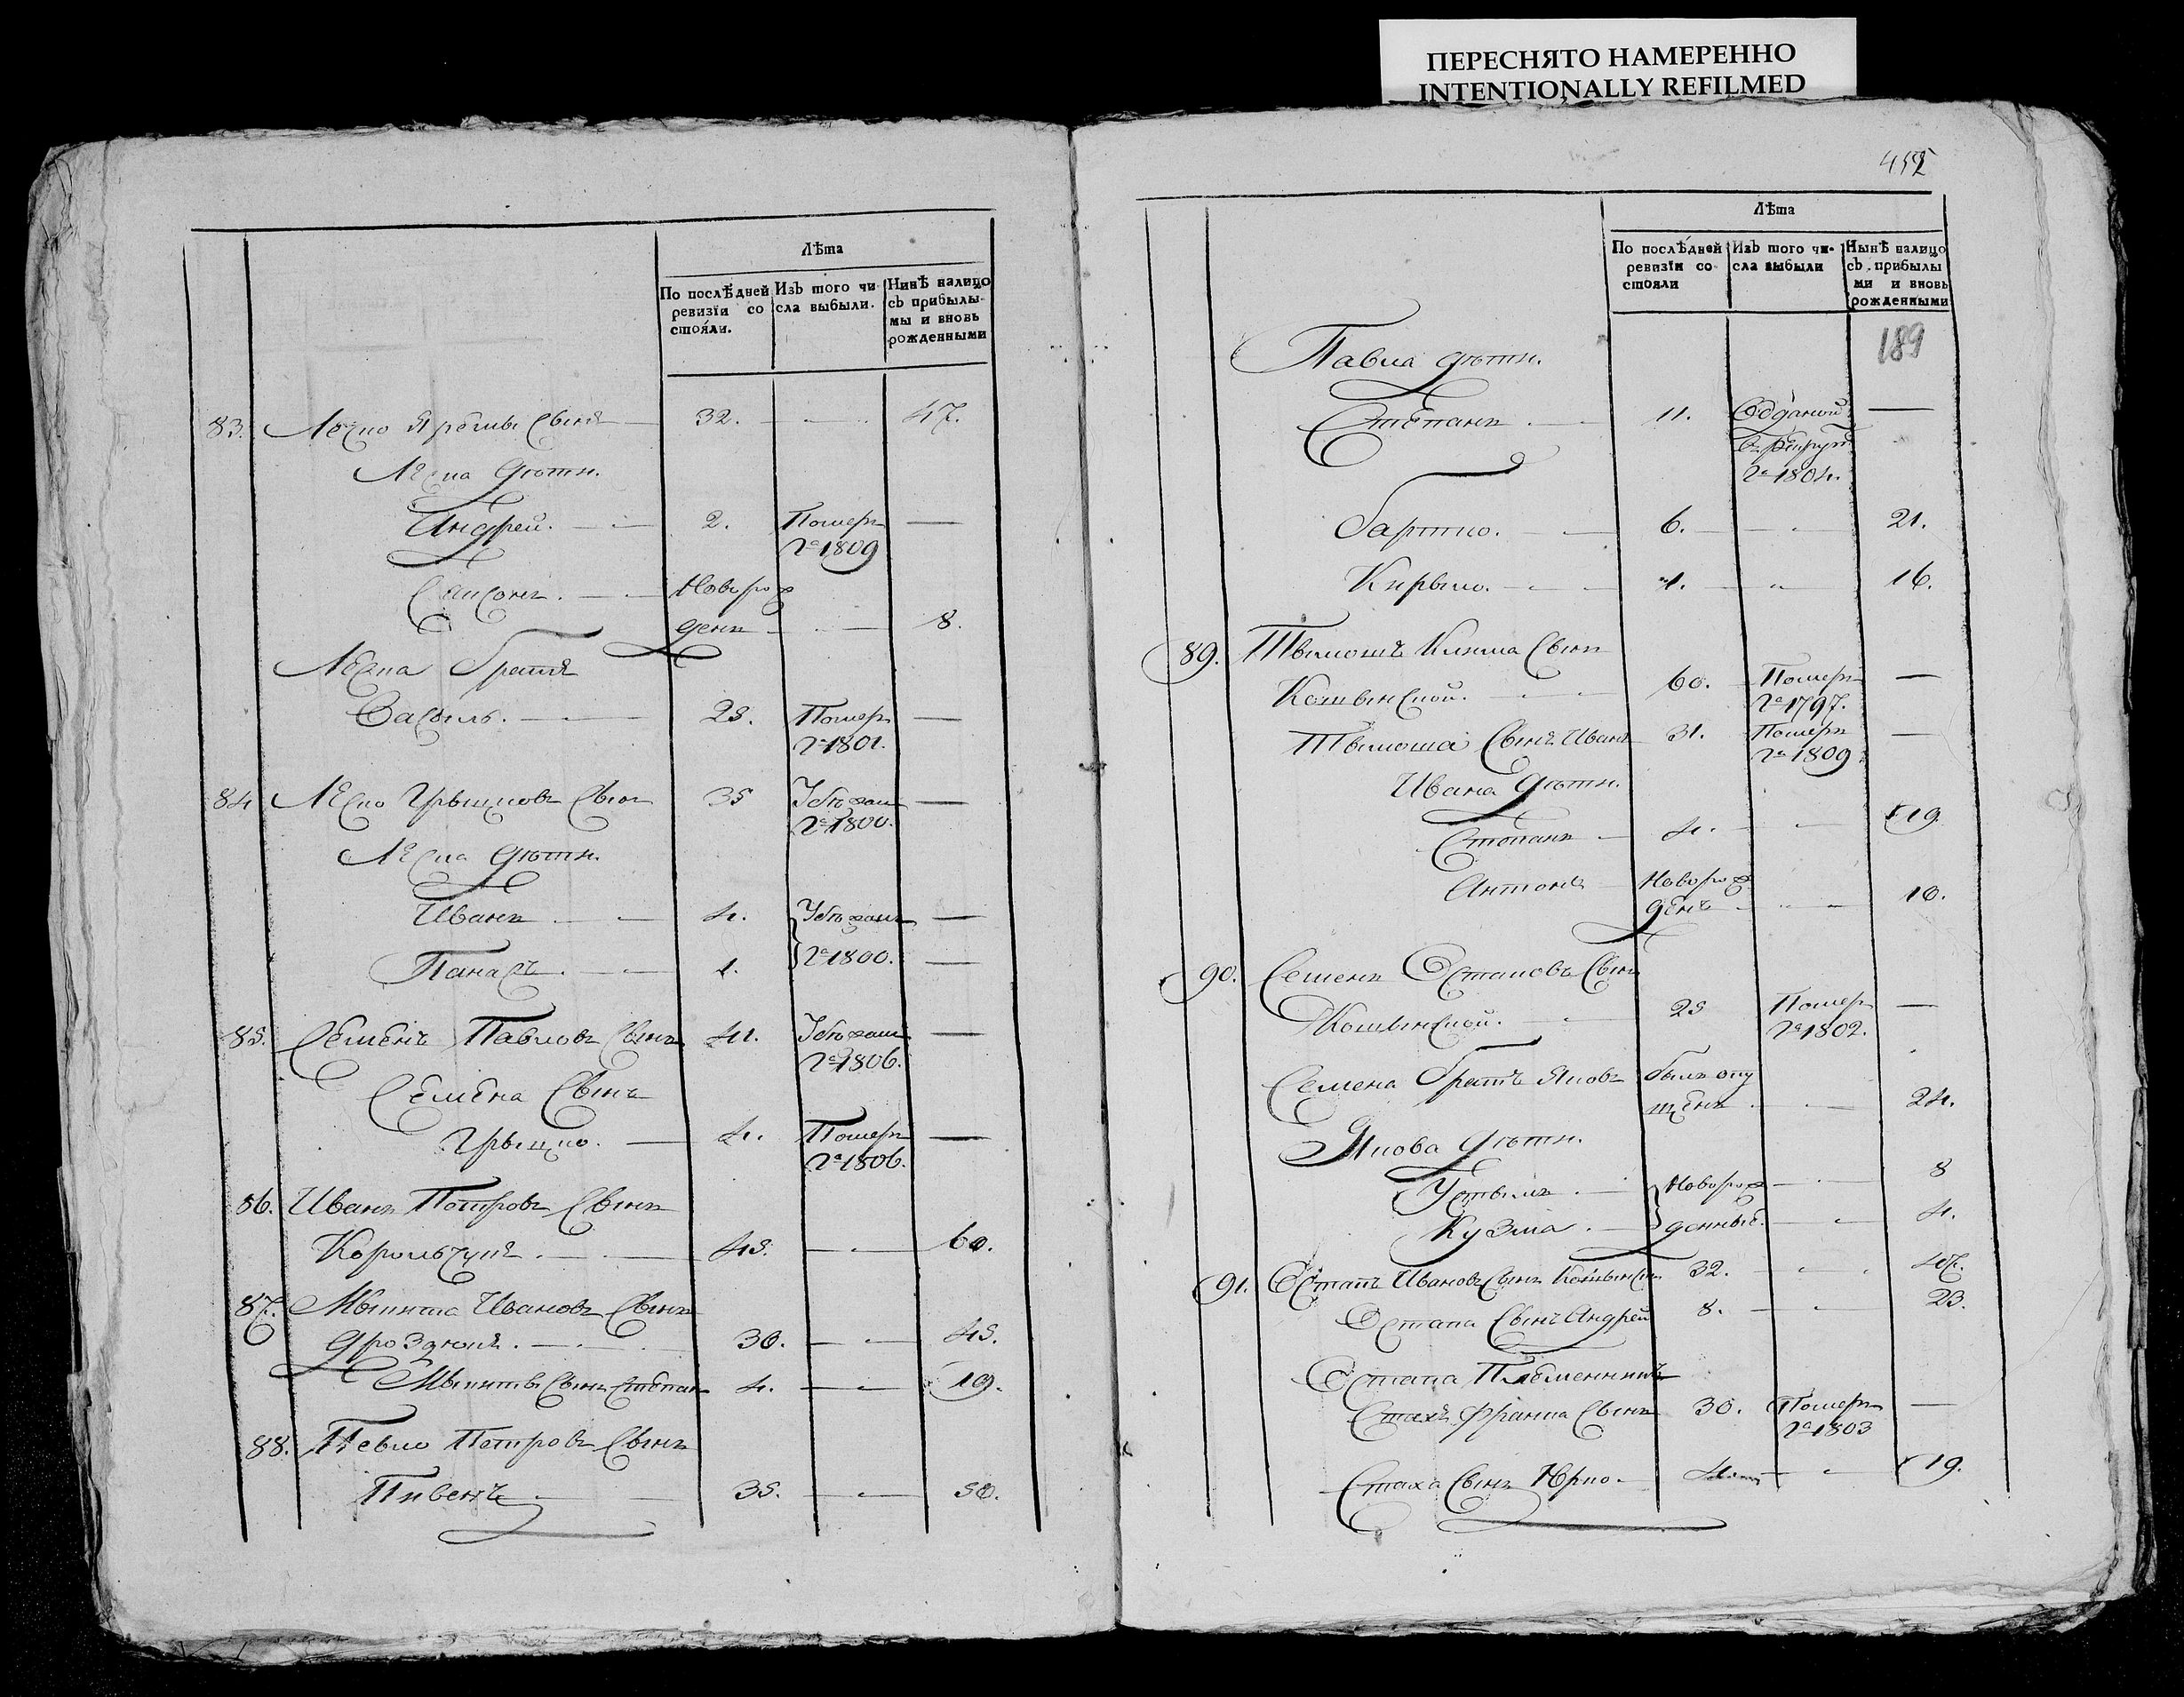 ПЕРЕСНЯТО НАМЕРЕННО
INTENTIONALLY REFILMED
Лѣта
По послѣдней ревизїи со стояли.
Изъ того чи сла выбыли.
Нинѣ налицо съ прибылы- мы и вновь рожденными
83. Леско Яремы Сынъ 32. 47.
Леска дѣти.
Андрей. 2. Померъ —
Га 1809
Самсонъ. Новорож
денъ 8.
Леска братъ
Василь. 25. Померъ —
Га 1801.
84 Леско Грыцковъ Сынъ 35 Убѣжалъ —
Га 1800.
Леска дѣти.
Иванъ 4. Убѣжали —
Панасъ. 1. Га 1800. —
85. Семенъ Павловъ Сынъ 41. Убѣжалъ —
Га 1806.
Семена Сынъ
Грыцко. 4. Померъ —
Га 1806.
86. Иванъ Петровъ Сынъ
Корольчукъ 45. 60.
87. Мыкита Ивановъ Сынъ
Дроздюкъ. 30. 45.
Мыкиты Сынъ Степанъ 4. 19.
88. Павло Петровъ Сынъ
Пивень 35. 50.
452
Лѣта
По послѣдней ревизїи со стояли
Изъ того чи- сла выбыли
Нынѣ налицо съ прибылы ми и вновь рожденными
189
Павла дѣти.
Степанъ 11. Отданой —
въ рекруты
Га 1804.
Бартко. 6. 21.
Кирыло. 1. 16.
89. Тымошъ Сынъ
60. Померъ —
Га 1797.
Тымоша Сынъ Иванъ 31. Померъ —
Га 1809
Ивана дѣти.
Степанъ 4. 19.
Антонъ Новорож
денъ 10.
90. Семенъ Остаповъ Сынъ
25 Померъ —
Га 1802.
Семена братъ Яковъ былъ опу
щенъ 24.
Якова дѣти.
Устымъ. Новорож 8
Кузма. денные. 4.
91. Остапъ Ивановъ Сынъ 32. 47.
Остапа Сынъ Андрей 8. 23.
Остапа Племенникъ
Стахъ Франка Сынъ 30. Померъ —
Га 1803
Стаха Сынъ Юрко. 4. 19.